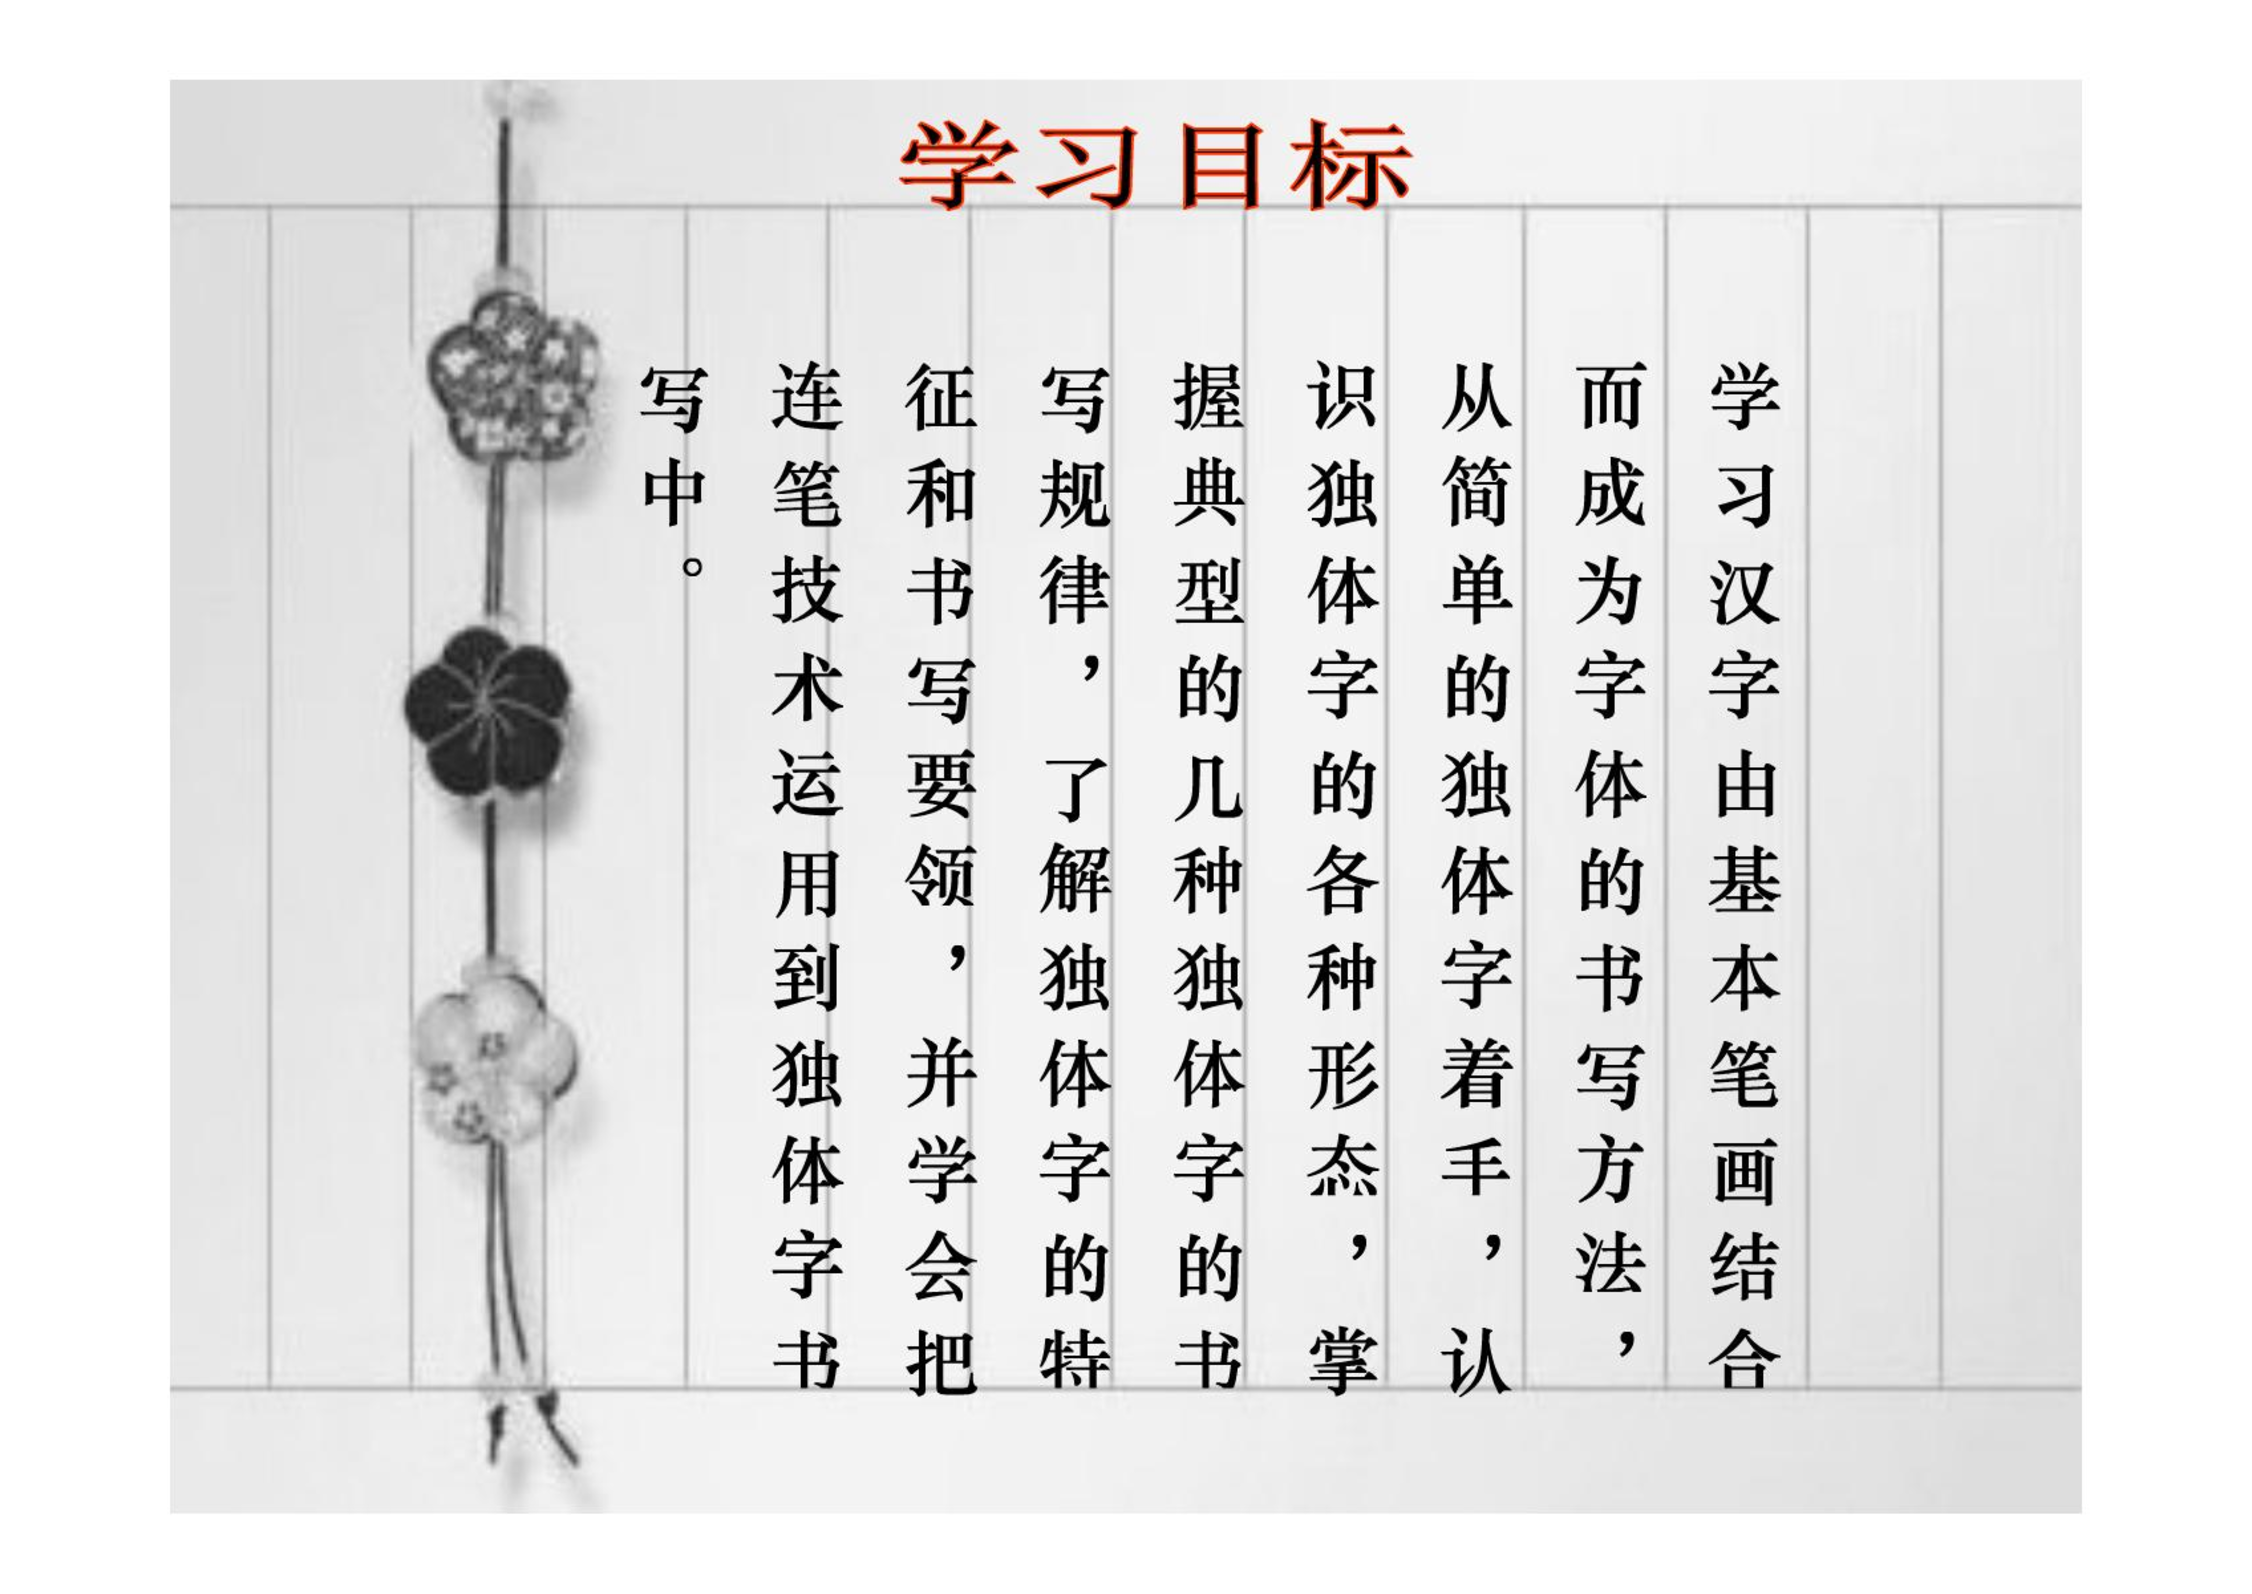 学习目标
学习汉字由基本笔画结合
而成为字体的书写方法，
从简单的独体字着手，认
识独体字的各种形态，掌
握典型的几种独体字的书
写规律，了解独体字的特
征和书写要领，并学会把
连笔技术运用到独体字书
写中。